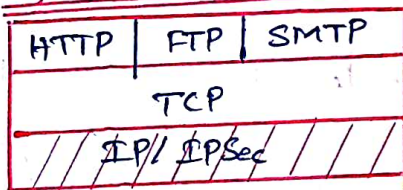 HTTP FTP SMTP
TCP
IP/ IPSec